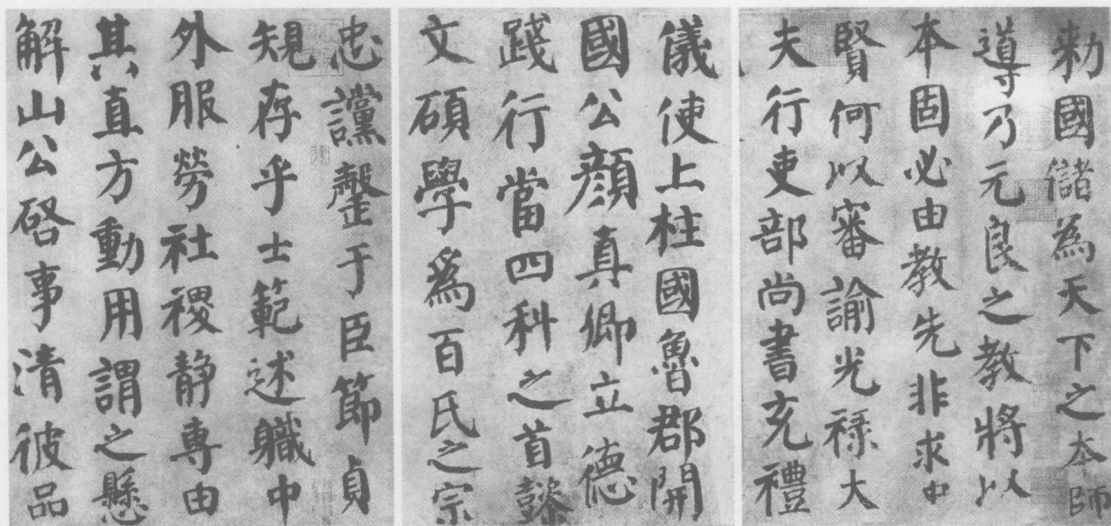 勅國儲為天下之本師
導乃元良之教將以
本固必由教先非求中
賢何以審諭光祿大
夫行吏部尚書充禮
儀使上柱國魯郡開
國公顏真卿立德
踐行當四科之首懿
文碩學爲百氏之宗
忠讜罄于臣節貞
規存乎士範述職中
外服勞社稷静專由
其直方動用謂之懸
解山公啓事清彼品